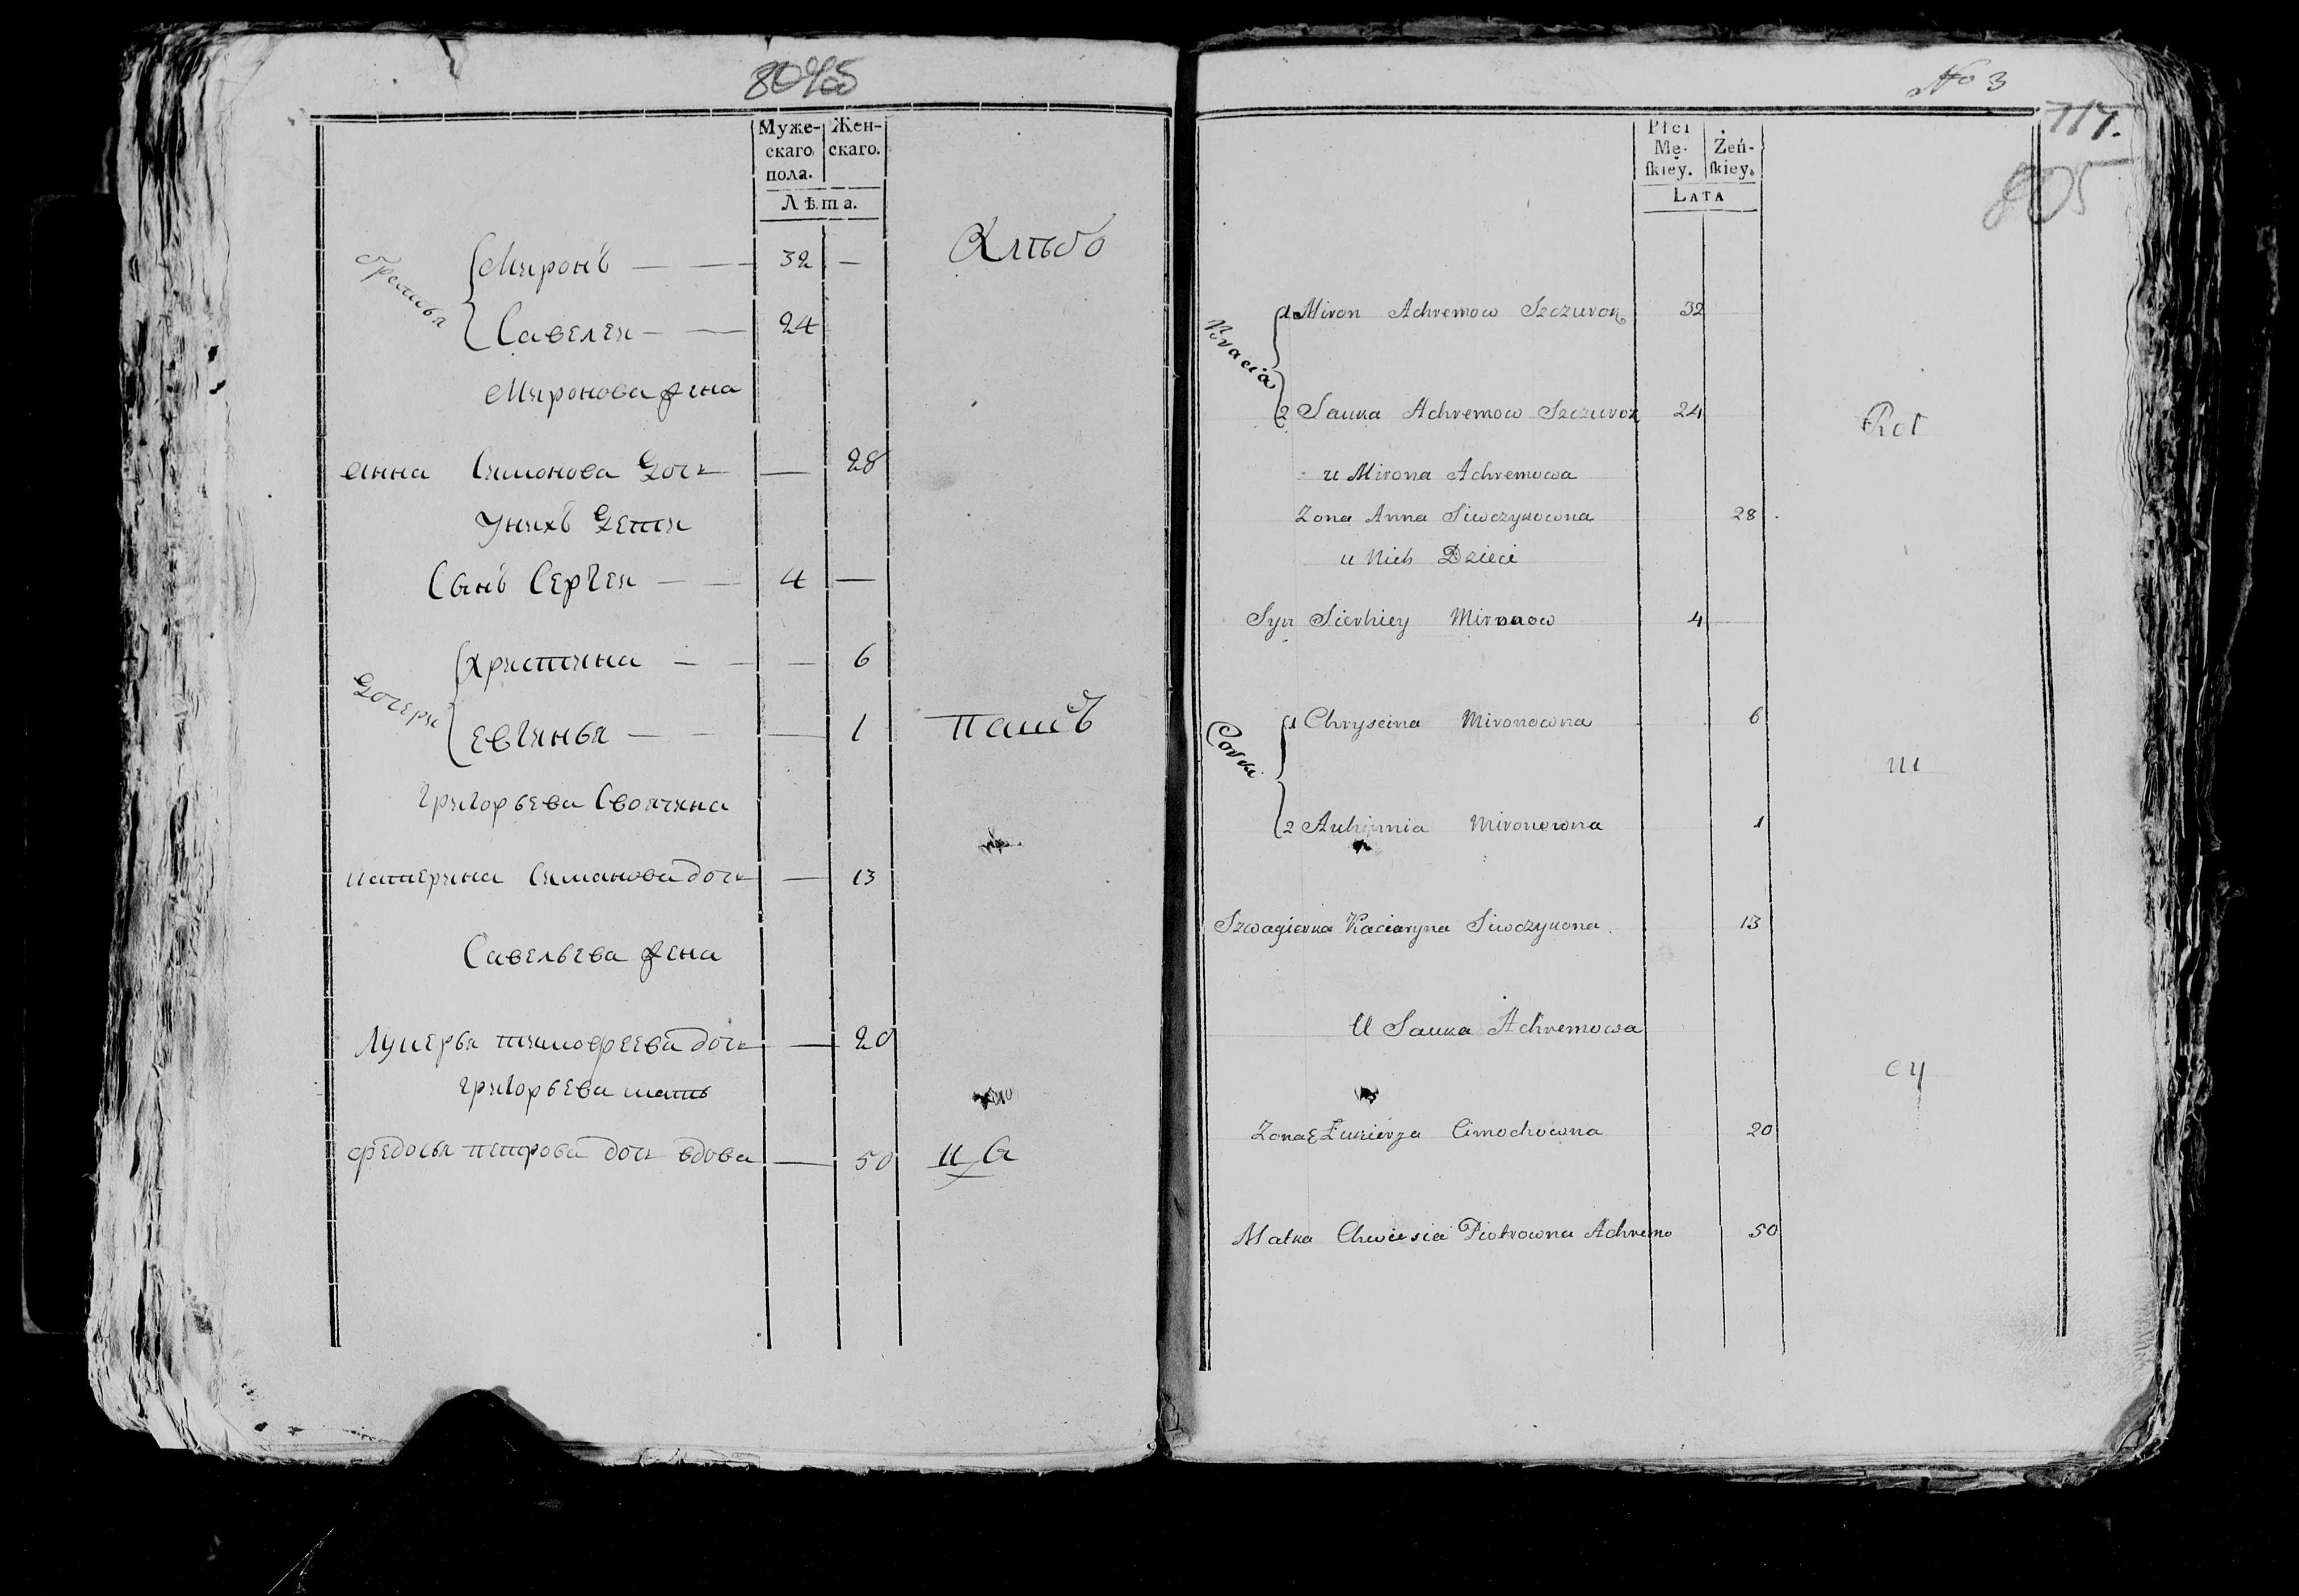 Муже-
скаго
пола.
Жен-
скаго.
Лѣта.
братья
Миронъ — — 32 —
Савелеи — — 24
Миронова жена
анна Симонова доч — 28
Униxъ дети
Сынъ Сергеи — — 4 —
дочери
христина — — — 6
евгинья — — — 1
григорьева Своячина
катерина Симанова доч — 13
Савельева жена
Лукерья тимофеева доч — 20
григорьева мать
федосья петрова доч вдова — 50
пашъ
No 3
717.
805
Płci
Mę-
ſkiey.
Żeń-
ſkiey.
LATA
Bracia
1 Miron Achremow Szczurok 32
2 Sauka Achremow Szczurok 24
u Mirona Achremowa
Zona Anna Siwczykowna 28
u Nich Dzieci
Syn Sierhiey Mironow 4
Corki
1 Chryscina Mironowna 6
2 Auhinnia Mironowna 1
Szwagierka Kaciaryna Siwczykona 13
U Sauka Achremowa
Zona Łukierja Cimochowna 20
Matka Chwiesia Piotrowna Achremo 50